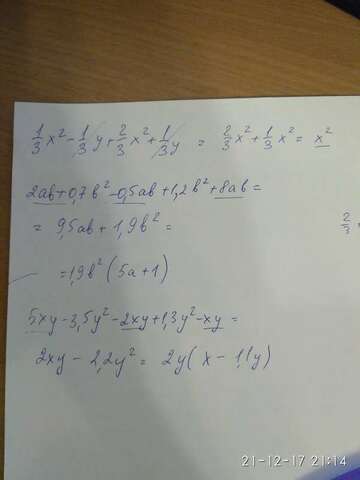 1/3 x² - 1/3 y + 2/3 x² + 1/3 y = 2/3 x² + 1/3 x² = x²
2ab + 0,7b² - 0,5ab + 1,2b² + 8ab =
= 9,5ab + 1,9b² =
2/3
= 1,9b² (5a + 1)
5xy - 3,5y² - 2xy + 1,3y² - xy =
2xy - 2,2y² = 2y(x - 1,1y)
21-12-17 21:14